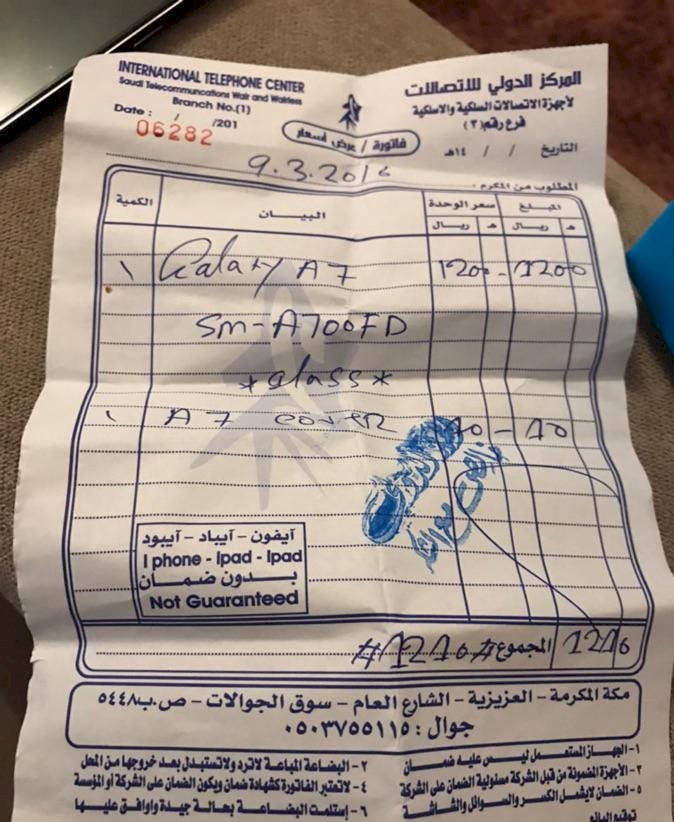 INTERNATIONAL TELEPHONE CENTER
Saudi Telecommuncations Wair and Wairless
Branch No.(1)
Date : / /201
06282
المركز الدولي للاتصالات
لأجهزة الاتصالات السلكية واللاسلكية
فرع رقم (٣)
التاريخ / / ١٤هـ
فاتورة / عرض أسعار
9.3.2016
المطلوب من المكرم:
الكمية البيــــان سعر الوحدة المبلغ
ريال هـ ريال هـ
١ Galaxy A7 1200 - 1200
SM-A700FD
*Glass*
١ A7 cover 10 - 10
آيفون - آيباد - آيبود
I phone - Ipad - Ipad
بــدون ضمــان
Not Guaranteed
المجموع #1210# 1210
مكة المكرمة - العزيزية - الشارع العام - سوق الجوالات - ص.ب ٥٤٤٨
جوال : ٠٥٠٣٧٥٥١١٥
١- الجهاز المستعمل ليس عليه ضمان
٢- البضاعة المباعة لاترد ولاتستبدل بعد خروجها من المحل
٣- الأجهزة المضمونة من قبل الشركة مسئولية الضمان على الشركة
٤- لاتعتبر الفاتورة كشهادة ضمان ويكون الضمان على الشركة أو المؤسسة
٥- الضمان لايشمل الكسر والسوائل والشاشة
٦- إستلمت البضاعة بحالة جيدة واوافق عليها
توقيع البائع